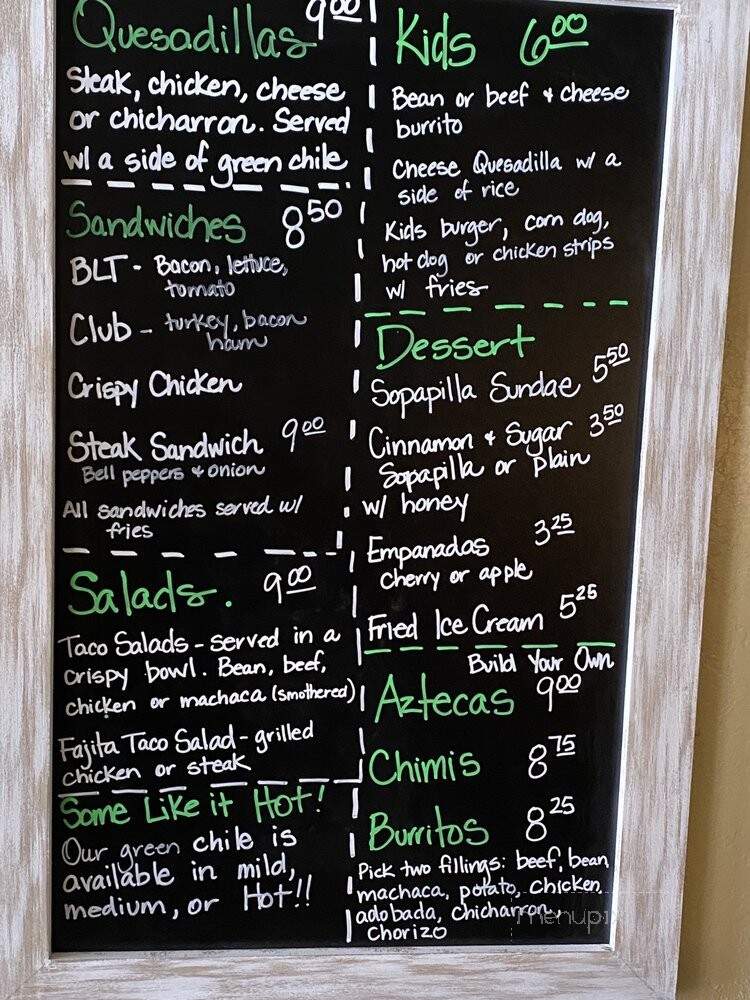 Quesadillas 9.00
Steak, chicken, cheese
or chicharron. Served
w/ a side of green chile
Sandwiches 8.50
BLT - Bacon, lettuce,
tomato
Club - turkey, bacon
ham
Crispy Chicken
Steak Sandwich 9.00
Bell peppers & onion
All sandwiches served w/
fries
Salads. 9.00
Taco Salads - served in a
crispy bowl. Bean, beef,
chicken or machaca (smothered)
Fajita Taco Salad - grilled
chicken or steak
Some Like it Hot!
Our green chile is
available in mild,
medium, or Hot!!
Kids 6.00
Bean or beef & cheese
burrito
Cheese Quesadilla w/ a
side of rice
Kids burger, corn dog,
hot dog or chicken strips
w/ fries
Dessert
Sopapilla Sundae 5.50
Cinnamon & Sugar 3.50
Sopapilla or plain
w/ honey
Empanadas 3.25
cherry or apple
Fried Ice Cream 5.25
Build Your Own
Aztecas 9.00
Chimis 8.75
Burritos 8.25
Pick two fillings: beef, bean
machaca, potato, chicken,
adobada, chicharron,
chorizo